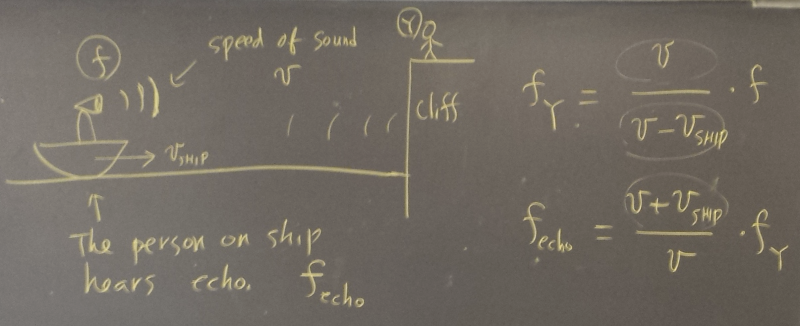 f
speed of sound
v
Y
cliff
v_SHIP
The person on ship
hears echo. f_echo
f_Y = v / (v - v_SHIP) · f
f_echo = (v + v_SHIP) / v · f_Y